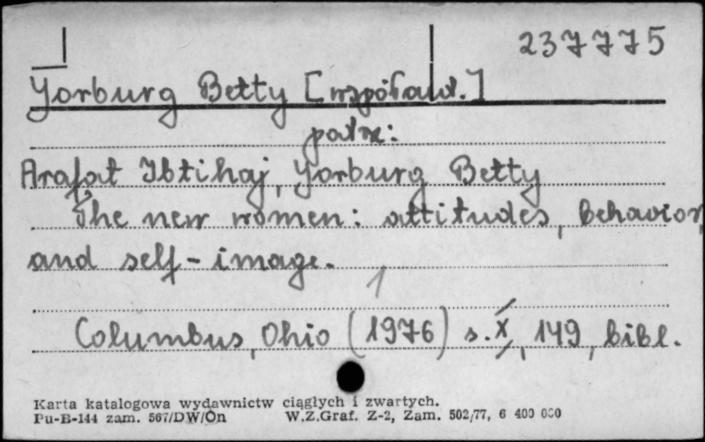 237775
Yorburg Betty [współaut.]
patrz:
Arafat Ibtihaj, Yorburg Betty
The new women: attitudes, behavior,
and self-image.
1
Columbus, Ohio (1976) s. X, 149, bibl.
Karta katalogowa wydawnictw ciągłych i zwartych.
Pu-B-144 zam. 567/DW/On W.Z.Graf. Z-2, Zam. 502/77, 6 400 000